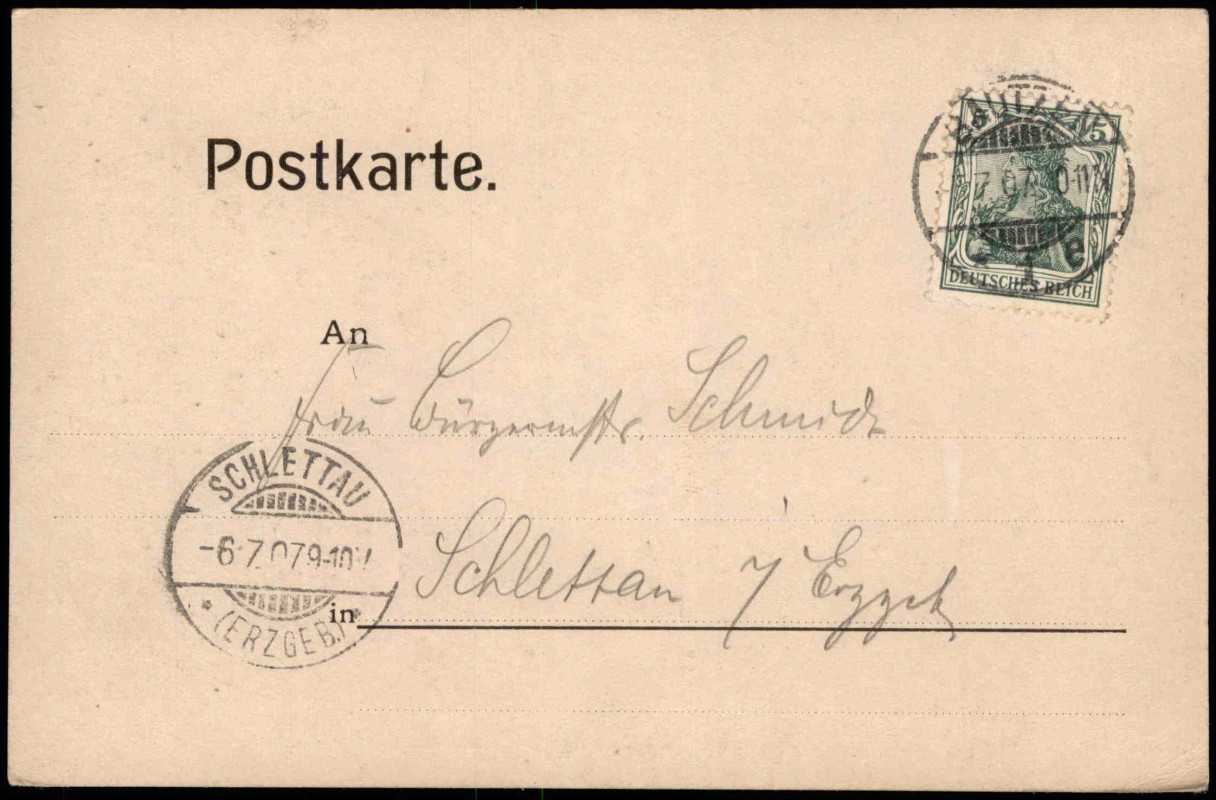 Postkarte.
5 5
7.07. 10-11V
1 e
DEUTSCHES REICH
An
Frau Bürgermstr. Schmidt
SCHLETTAU
-6.7.07.9-10V
* (ERZGEB.) *
Schlettau i/ Erzgeb
in